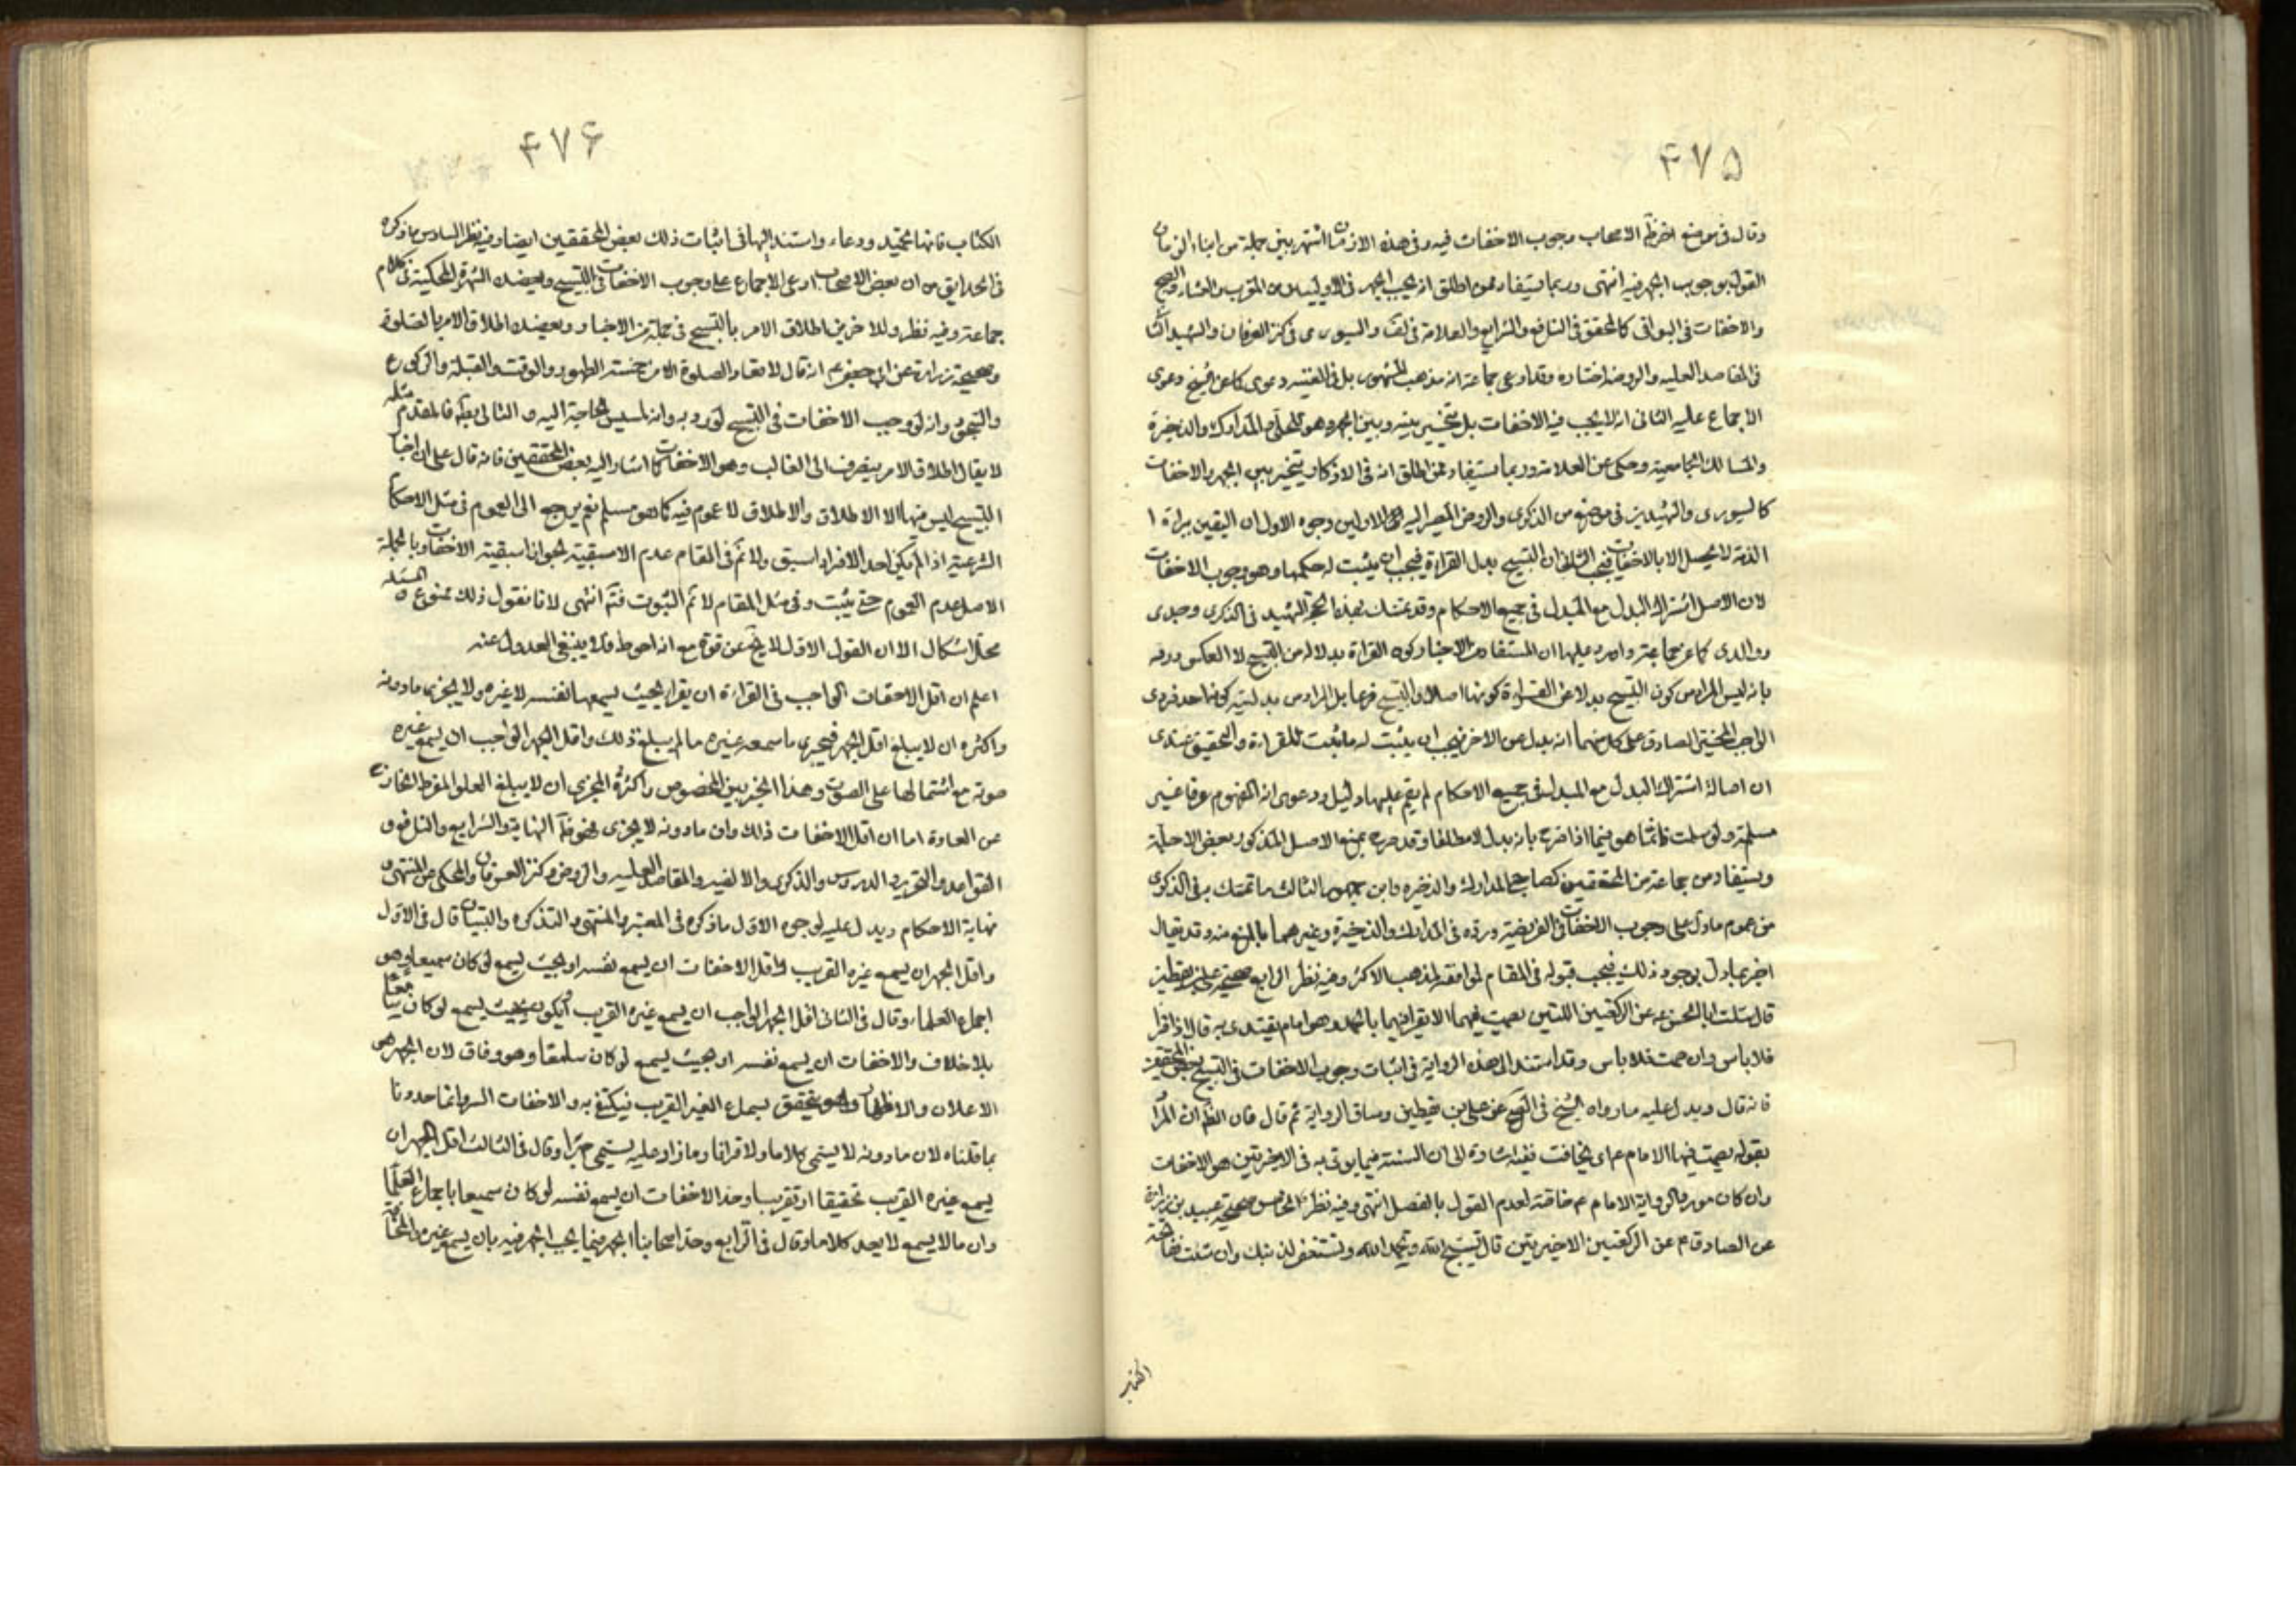 ۴۷۵
وقال فی موضع اخر ظ الاصحاب وجوب الاخفات فیه وفی هذه الازمان اشتهر بین جملة من ابناء الزمان
القول بوجوب الجهر فیه انتهی وربما یستفاد ممن اطلق انه یجب الجهر فی الاولیین من المغرب والعشاء والصبح
والاخفات فی البواقی کالمحقق فی النافع والشرایع والعلامة فی لف والسیوری فی کنز العرفان والشهید الثا
فی المقاصد العلیه والروضه اختاره وقد ادعی جماعة انه مذهب المشهور بل فی الغنیه دعوی کما عن الشیخ دعوی
الاجماع علیه الثانی انه لا یجب فیه الاخفات بل یتخیر بینه وبین الجهر وهو للحلی والمدارک والذخیرة
والمسالک الجامعیة وحکی عن العلامة وربما یستفاد ممن اطلق انه فی الاذکار یتخیر بین الجهر والاخفات
کالسیوری والشهیدین فی موضع من الذکری والروض المصیر الیه للاولین وجوه الاول ان الیقین ببراءة ا
الذمة لا یحصل الا بالاخفات فیجب الثانی ان التسبیح بدل القراءة فیجب ان یثبت له حکمها وهو وجوب الاخفات
لان الاصل اشتراک البدل مع المبدل فی جمیع الاحکام وقد تمسک بهذا الحجة الشهید فی الذکری وجدی
ووالدی کما عن جماعة واورد علیها ان المستفاد من الاخبار کون القراءة بدلا له من التسبیح لا العکس ورد
بانه لیس المراد من کون التسبیح بدلا عن القراءة کونها اصلا والتسبیح فرعا بل المراد من بدلیته کونه احد فردی
الواجب المخیر الصادق علی کل منهما انه بدل عن الاخر فیجب ان یثبت له ما ثبت للقراءة والتحقیق عندی
ان اصالة اشتراک البدل مع المبدل فی جمیع الاحکام لم یقم علیها دلیل ودعوی انه المفهوم عرفا غیر
مسلمة ولو سلمت فانما هو فیما اذا صرح بانه بدل لا مطلقا وقد صرح بمنع الاصل المذکور بعض الاجلة
ویستفاد من جماعة من المحققین کصاحب المدارک والذخیره وابن جمهور الثالث ما تمسک به فی الذکری
من عموم ما دل علی وجوب الاخفات فی الفریضة ورده فی المدارک والذخیرة وغیرهما بالمنع منه وقد یقال
اخبر عادل بوجود ذلک فیجب قبوله فی المقام لموافقته لمذهب الاکثر وفیه نظر الرابع صحیحة علی بن یقطین
قال سئلت ابا الحسن ع عن الرکعتین اللتین یصمت فیهما الامام ایقرا فیهما بالحمد وهو امام یقتدی به قال اذا قرا
فلا باس وان صمت فلا باس وقد استند الی هذه الروایة فی اثبات وجوب الاخفات فی التسبیح بعض المحققین
فانه قال ویدل علیه ما رواه الشیخ فی الصحیح عن علی بن یقطین وساق الروایة ثم قال فان الظ ان المرا
بقوله یصمت فیها الامام ع ای یخافت ففیه اشارة الی ان السنة فیما یؤتی به فی الاخیرتین هو الاخفات
وان کان مورد الروایة الامام ع خاصة لعدم القول بالفصل انتهی وفیه نظر الخامس صحیحة عبید بن زرارة
عن الصادق ع عن الرکعتین الاخیرتین قال تسبح الله وتحمد الله وتستغفر لذنبک وان شئت ففاتحة
الکتاب
۴۷۶
الکتاب فانها تحمید ودعاء واستند الیها فی اثبات ذلک بعض المحققین ایضا وفیه نظر السادس ما ذکره
فی الحدایق من ان بعض الاصحاب ادعی الاجماع علی وجوب الاخفات فی التسبیح ویعضده الشهرة المحکیة فی کلام
جماعة وفیه نظر وللاخرین اطلاق الامر بالتسبیح فی جملة من الاخبار ویعضده اطلاق الامر بالصلوة
وصحیحة زرارة عن ابی جعفر ع انه قال لا تعاد الصلوة الا من خمسة الطهور والوقت والقبلة والرکوع
والسجود وانه لو وجب الاخفات فی التسبیح لورد به وانه لمسیس الحاجة الیه والتالی بط فالمقدم مثله
لا یقال اطلاق الامر ینصرف الی الغالب وهو الاخفات کما اشار الیه بعض المحققین فانه قال علی ان اخبا
التسبیح لیس فیها الا الاطلاق والاطلاق لا عموم فیه کما هو مسلم نعم یرجع الی العموم فی مثل الاحکا
الشرعیة اذا لم یکن احد الافراد اسبق ولا ثم فی المقام عدم الاسبقیة لجواز اسبقیة الاخفات وبالجملة
الاصل عدم العموم حتی یثبت وفی مثل المقام لا ثم الثبوت فتم انتهی لانا نقول ذلک ممنوع المسئله
محل اشکال الا ان القول الاول لا یخ عن قوة مع انه احوط فلا ینبغی العدول عنه
اعلم ان اقل الاخفات الواجب فی القراءة ان یقرا بحیث یسمعها نفسه لا غیره ولا یجزی ما دونه
واکثره ان لا یبلغ اقل الجهر فیجزی ما سمعه غیره ما لم یبلغ ذلک واقل الجهر الواجب ان یسمع غیره
صوته مع اشتمالها علی الصوت وهذا الجزء بین المخصوص واکثره المجزی ان لا یبلغ العلو المفرط الخارج
عن العادة اما ان اقل الاخفات ذلک وان ما دونه لا یجزی فهو ظ النهایة والشرایع والنافع و
القواعد والتحریر والدروس والذکری والالفیه والمقاصد العلیه والروض وکنز العرفان والمحکی عن المنتهی و
نهایة الاحکام ویدل علیه لوجوه الاول ما ذکره فی المعتبر والمنتهی والتذکره والتبیان قال فی الاول
واقل الجهر ان یسمع غیره القریب واقل الاخفات ان یسمع نفسه او بحیث یسمع لو کان سمیعا وهو
اجماع العلماء وقال فی الثانی اقل الجهر الواجب ان یسمع غیره القریب او یکون بحیث یسمع لو کان سامعا
بلا خلاف والاخفات ان یسمع نفسه او بحیث یسمع لو کان سامعا وهو وفاق لان الجهر هو
الاعلان والاظهار وهو یتحقق بسماع الغیر القریب فیکتفی به والاخفات السر وانما حددنا
بما قلناه لان ما دونه لا یسمی کلاما ولا قرانا وما زاد علیه یسمی جهرا وقال فی الثالث اقل الجهر ان
یسمع غیره القریب تحقیقا او تقریبا وحد الاخفات ان یسمع نفسه لو کان سمیعا باجماع العلما
وان ما لا یسمع لا یعد کلاما وقال فی الرابع وحد اصحابنا الجهر فیما یجب الجهر فیه بان یسمع غیره والمخا